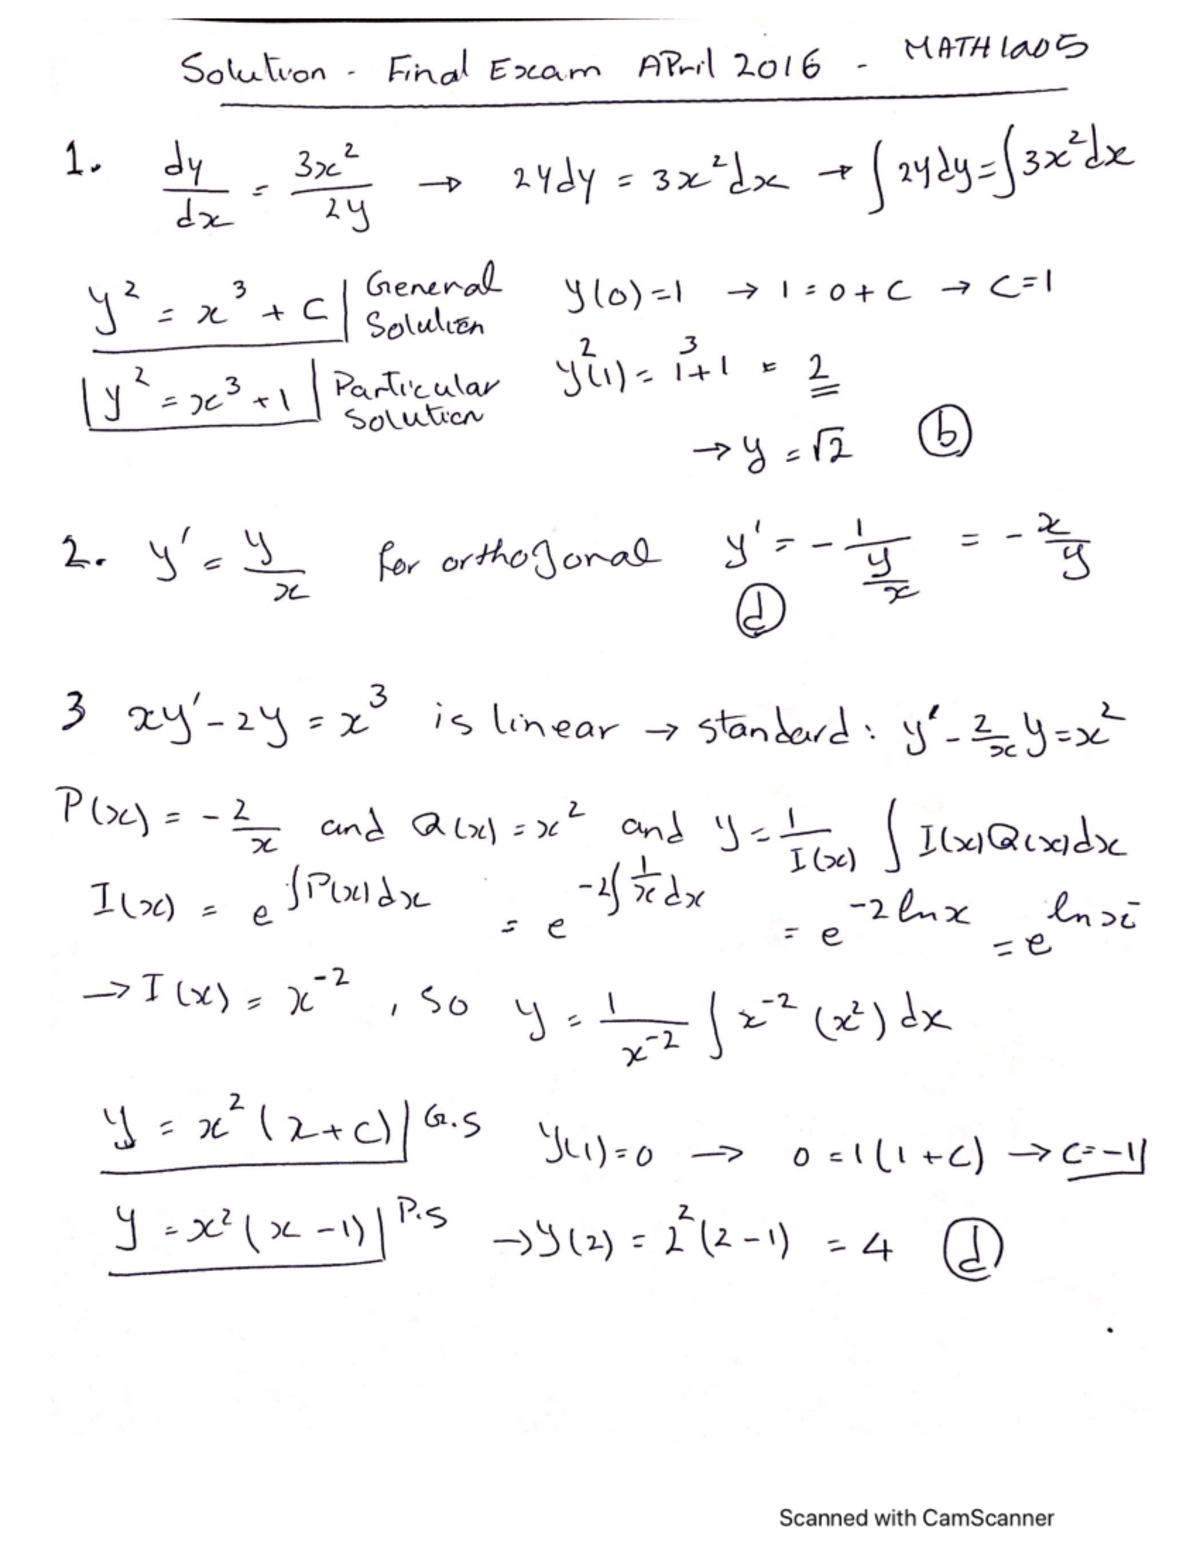 Solution - Final Exam April 2016 - MATH1005
1. dy/dx = 3x²/2y → 2ydy = 3x²dx → ∫2ydy = ∫3x²dx
y² = x³ + C | General Solution   y(0)=1 → 1 = 0 + C → C=1
y² = x³ + 1 | Particular Solution   y²(1) = 1³ + 1 = 2
→ y = √2   (b)
2. y' = y/x   for orthogonal   y' = - 1/(y/x) = - x/y
(d)
3 xy' - 2y = x³ is linear → standard: y' - 2/x y = x²
P(x) = - 2/x and Q(x) = x² and y = 1/I(x) ∫ I(x)Q(x)dx
I(x) = e^∫P(x)dx = e^-2∫1/x dx = e^-2lnx = e^lnx⁻²
→ I(x) = x⁻² , so y = 1/x⁻² ∫ x⁻² (x²) dx
y = x² (x + C) | G.S   y(1) = 0 → 0 = 1(1 + C) → C = -1
y = x² (x - 1) | P.S → y(2) = 2² (2 - 1) = 4   (d)
Scanned with CamScanner